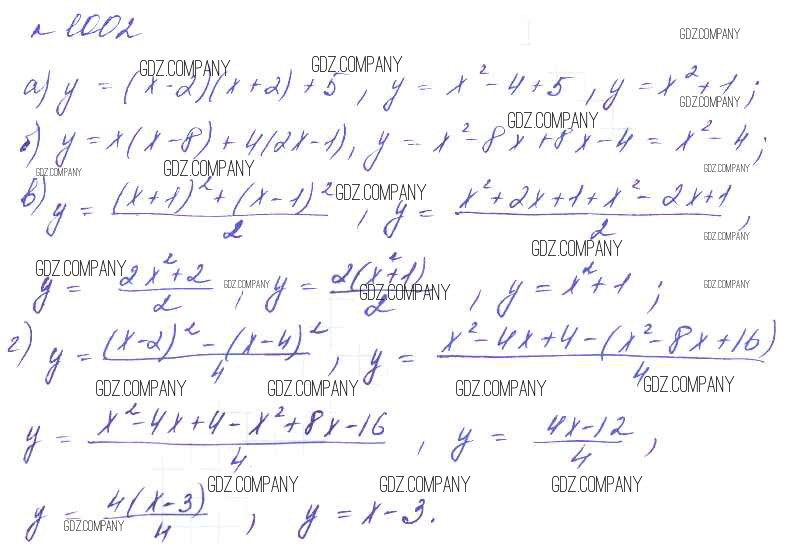 № 1002
GDZ.COMPANY
GDZ.COMPANY GDZ.COMPANY
а) y = (x-2)(x+2)+5, y = x²-4+5, y = x²+1;
GDZ.COMPANY
GDZ.COMPANY
б) y = x(x-8)+4(2x-1), y = x²-8x+8x-4 = x²-4;
GDZ.COMPANY GDZ.COMPANY GDZ.COMPANY
в) y = ((x+1)²+(x-1)²)/2, y = (x²+2x+1+x²-2x+1)/2,
GDZ.COMPANY
GDZ.COMPANY
GDZ.COMPANY
GDZ.COMPANY GDZ.COMPANY GDZ.COMPANY
y = (2x²+2)/2, y = 2(x²+1)/2, y = x²+1;
GDZ.COMPANY
г) y = ((x-2)²-(x-4)²)/4, y = (x²-4x+4-(x²-8x+16))/4
GDZ.COMPANY GDZ.COMPANY GDZ.COMPANY GDZ.COMPANY
y = (x²-4x+4-x²+8x-16)/4, y = (4x-12)/4,
GDZ.COMPANY GDZ.COMPANY GDZ.COMPANY
y = 4(x-3)/4, y = x-3.
GDZ.COMPANY